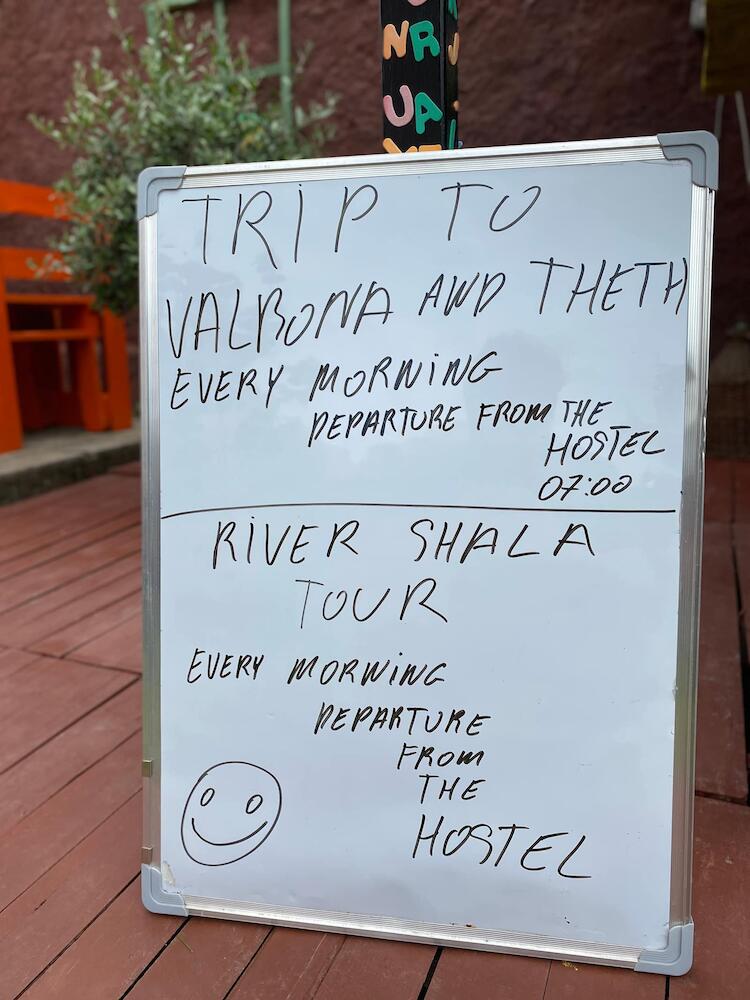 NR
UA
TRIP TO
VALBONA AND THETH
EVERY MORNING
DEPARTURE FROM THE
HOSTEL
07:00
RIVER SHALA
TOUR
EVERY MORNING
DEPARTURE
FROM
THE
HOSTEL